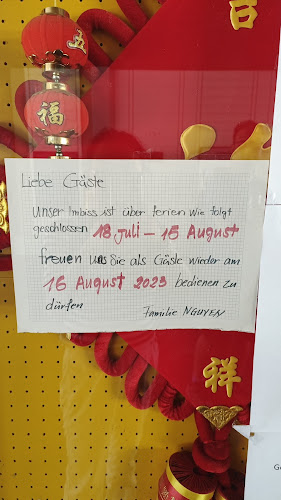 吉
福
Liebe Gäste
unser Imbiss ist über ferien wie folgt
geschlossen 18 juli – 15 August
freuen uns Sie als Gäste wieder am
16 August 2023 bedienen zu
dürfen Familie NGUYEN
祥